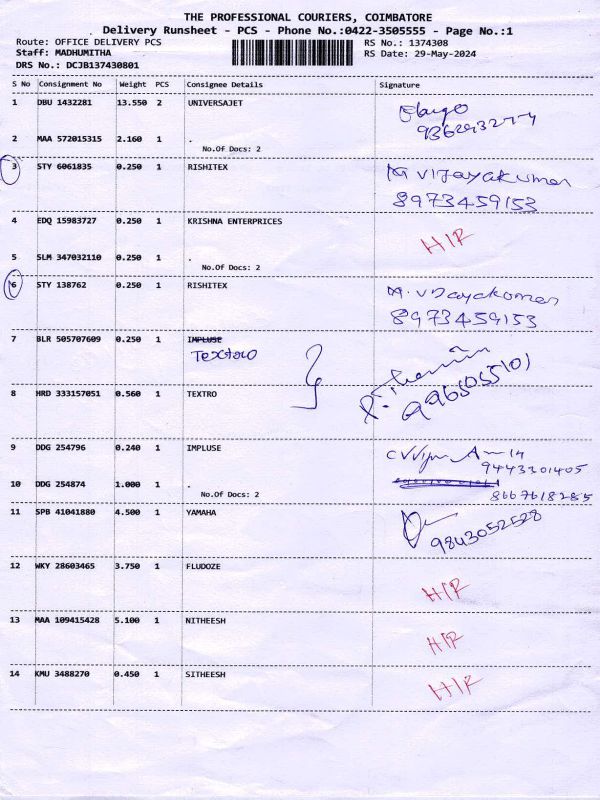 THE PROFESSIONAL COURIERS, COIMBATORE
Delivery Runsheet - PCS - Phone No.:0422-3505555 - Page No.:1
Route: OFFICE DELIVERY PCS
RS No.: 1374308
Staff: MADHUMITHA
RS Date: 29-May-2024
DRS No.: DCJB137430801
S No Consignment No Weight PCS Consignee Details Signature
1 DBU 1432281 13.550 2 UNIVERSAJET
2 MAA 572015315 2.160 1 .
No.Of Docs: 2
3 STY 6061835 0.250 1 RISHITEX M Vijayakumar
8973459153
4 EDQ 15983727 0.250 1 KRISHNA ENTERPRICES H/R
5 SLM 347032110 0.250 1 .
No.Of Docs: 2
6 STY 138762 0.250 1 RISHITEX M. Vijayakumar
8973459153
7 BLR 505707609 0.250 1 IMPLUSE
Textro
8 HRD 333157051 0.560 1 TEXTRO
9965055101
9 DDG 254796 0.240 1 IMPLUSE
9443301405
10 DDG 254874 1.000 1 .
No.Of Docs: 2
8667618285
11 SPB 41041880 4.500 1 YAMAHA
9843052528
12 WKY 28603465 3.750 1 FLUDOZE H/R
13 MAA 109415428 5.100 1 NITHEESH H/R
14 KMU 3488270 0.450 1 SITHEESH H/R